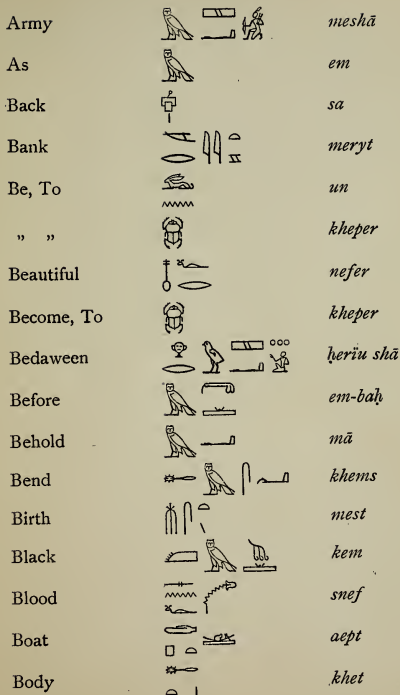 Army 𓅓𓈙𓂝𓀎 meshā
As 𓅓 em
Back sa
Bank meryt
Be, To 𓃹𓈖 un
„ „ 𓆣 kheper
Beautiful 𓄤𓆑𓂋 nefer
Become, To 𓆣 kheper
Bedaween ḥeriu shā
Before em-baḥ
Behold 𓅓𓂝 mā
Bend khems
Birth mest
Black kem
Blood snef
Boat aept
Body khet